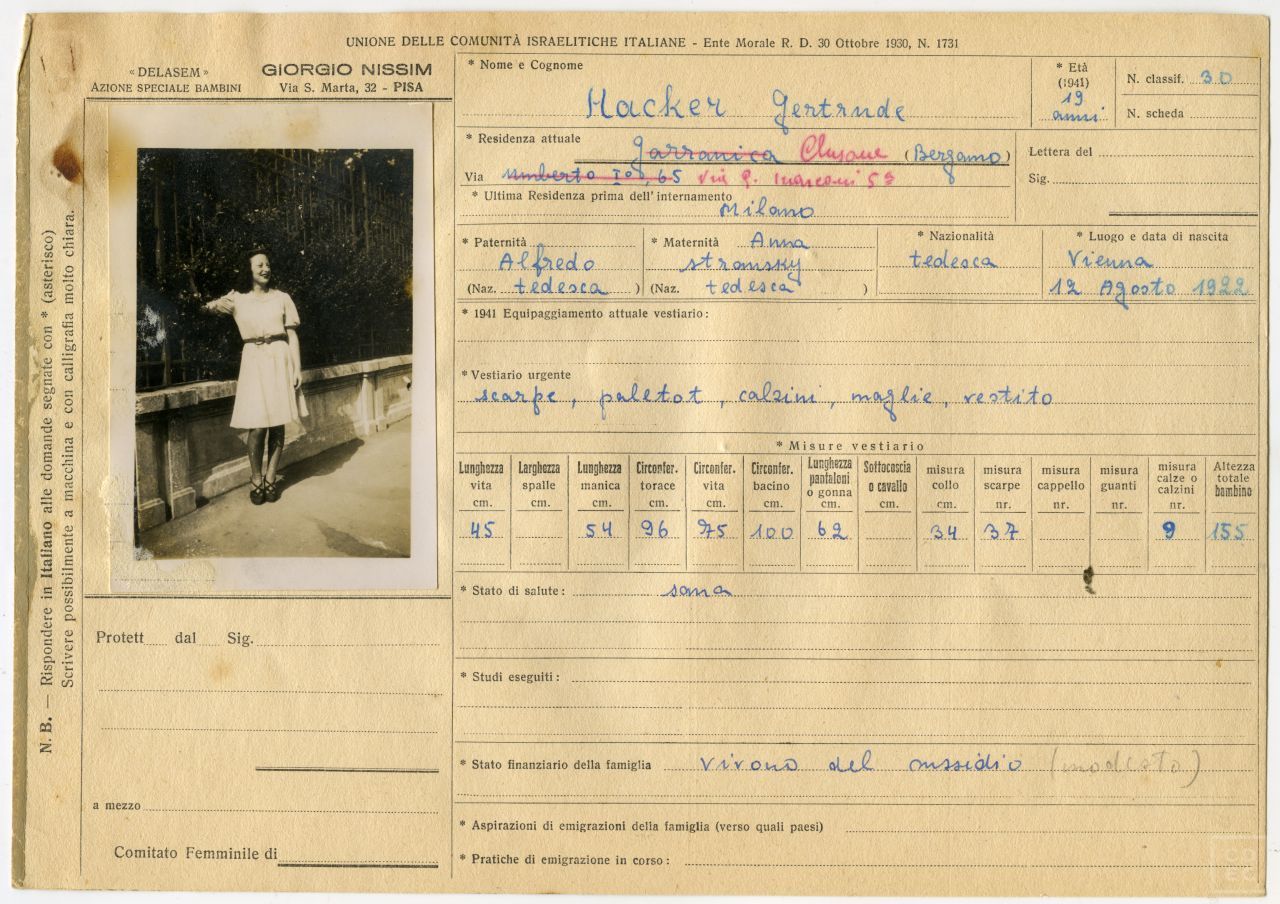 UNIONE DELLE COMUNITÀ ISRAELITICHE ITALIANE - Ente Morale R. D. 30 Ottobre 1930, N. 1731
« DELASEM »
AZIONE SPECIALE BAMBINI
GIORGIO NISSIM
Via S. Marta, 32 - PISA
N. B. — Rispondere in Italiano alle domande segnate con * (asterisco)
Scrivere possibilmente a macchina e con calligrafia molto chiara.
* Nome e Cognome
Hacker Gertrude
* Età
(1941)
19
anni
N. classif. 30
N. scheda
* Residenza attuale
Clusone (Bergamo)
Via Umberto I°, 65 Via G. Marconi 5
Lettera del
Sig.
* Ultima Residenza prima dell'internamento
Milano
* Paternità
Alfredo
(Naz. tedesca )
* Maternità Anna
Stransky
(Naz. tedesca )
* Nazionalità
tedesca
* Luogo e data di nascita
Vienna
12 Agosto 1922
* 1941 Equipaggiamento attuale vestiario:
* Vestiario urgente
scarpe, paletot, calzini, maglie, vestito
* Misure vestiario
Lunghezza vita cm. 45
Larghezza spalle cm.
Lunghezza manica cm. 54
Circonfer. torace cm. 96
Circonfer. vita cm. 75
Circonfer. bacino cm. 100
Lunghezza pantaloni o gonna cm. 62
Sottocoscia o cavallo cm.
misura collo cm. 34
misura scarpe nr. 37
misura cappello nr.
misura guanti nr.
misura calze o calzini nr. 9
Altezza totale bambino 155
* Stato di salute: sana
* Studi eseguiti:
* Stato finanziario della famiglia vivono del sussidio (modesto)
* Aspirazioni di emigrazioni della famiglia (verso quali paesi)
* Pratiche di emigrazione in corso:
Protett dal Sig.
a mezzo
Comitato Femminile di
CD
EC